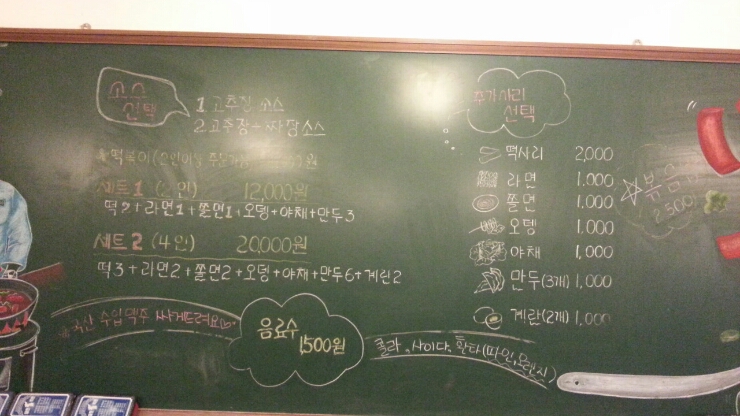 소스
선택
1. 고추장 소스
2. 고추장+짜장소스
떡볶이(2인이상 주문가능)
세트1 (2인) 12,000원
떡2+라면1+쫄면1+오뎅+야채+만두3
세트2 (4인) 20,000원
떡3+라면2+쫄면2+오뎅+야채+만두6+계란2
수입맥주 싸게드려요♡
음료수
1,500원
콜라, 사이다, 환타(파인,오렌지)
추가사리
선택
떡사리 2,000
라면 1,000
쫄면 1,000
오뎅 1,000
야채 1,000
만두(3개) 1,000
계란(2개) 1,000
☆볶음
2,500